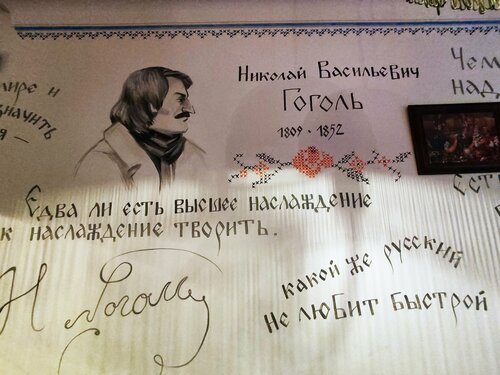 Николай Васильевич
Гоголь
1809 - 1852
мире и
значить
я –
Чем
над
Ест
Едва ли есть высшее наслаждение
к наслаждение творить.
Н Гоголь
какой же русский
не любит быстрой